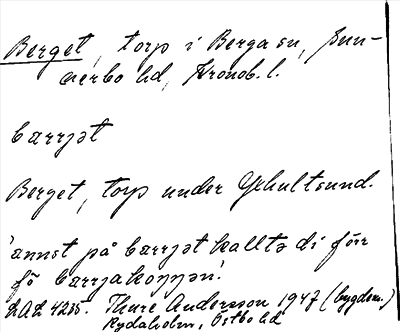 Berget, torp i Berga sn, Sun-
nerbo hd, Kronob. l.
barrjət
Berget, torp under Yxhultsund.
'annst på barrjət kallte di förr
fö barrjakojjən'.
D.A.L. 4235. Thure Andersson 1947 (bygdem.)
Rydaholm, Östbo hd